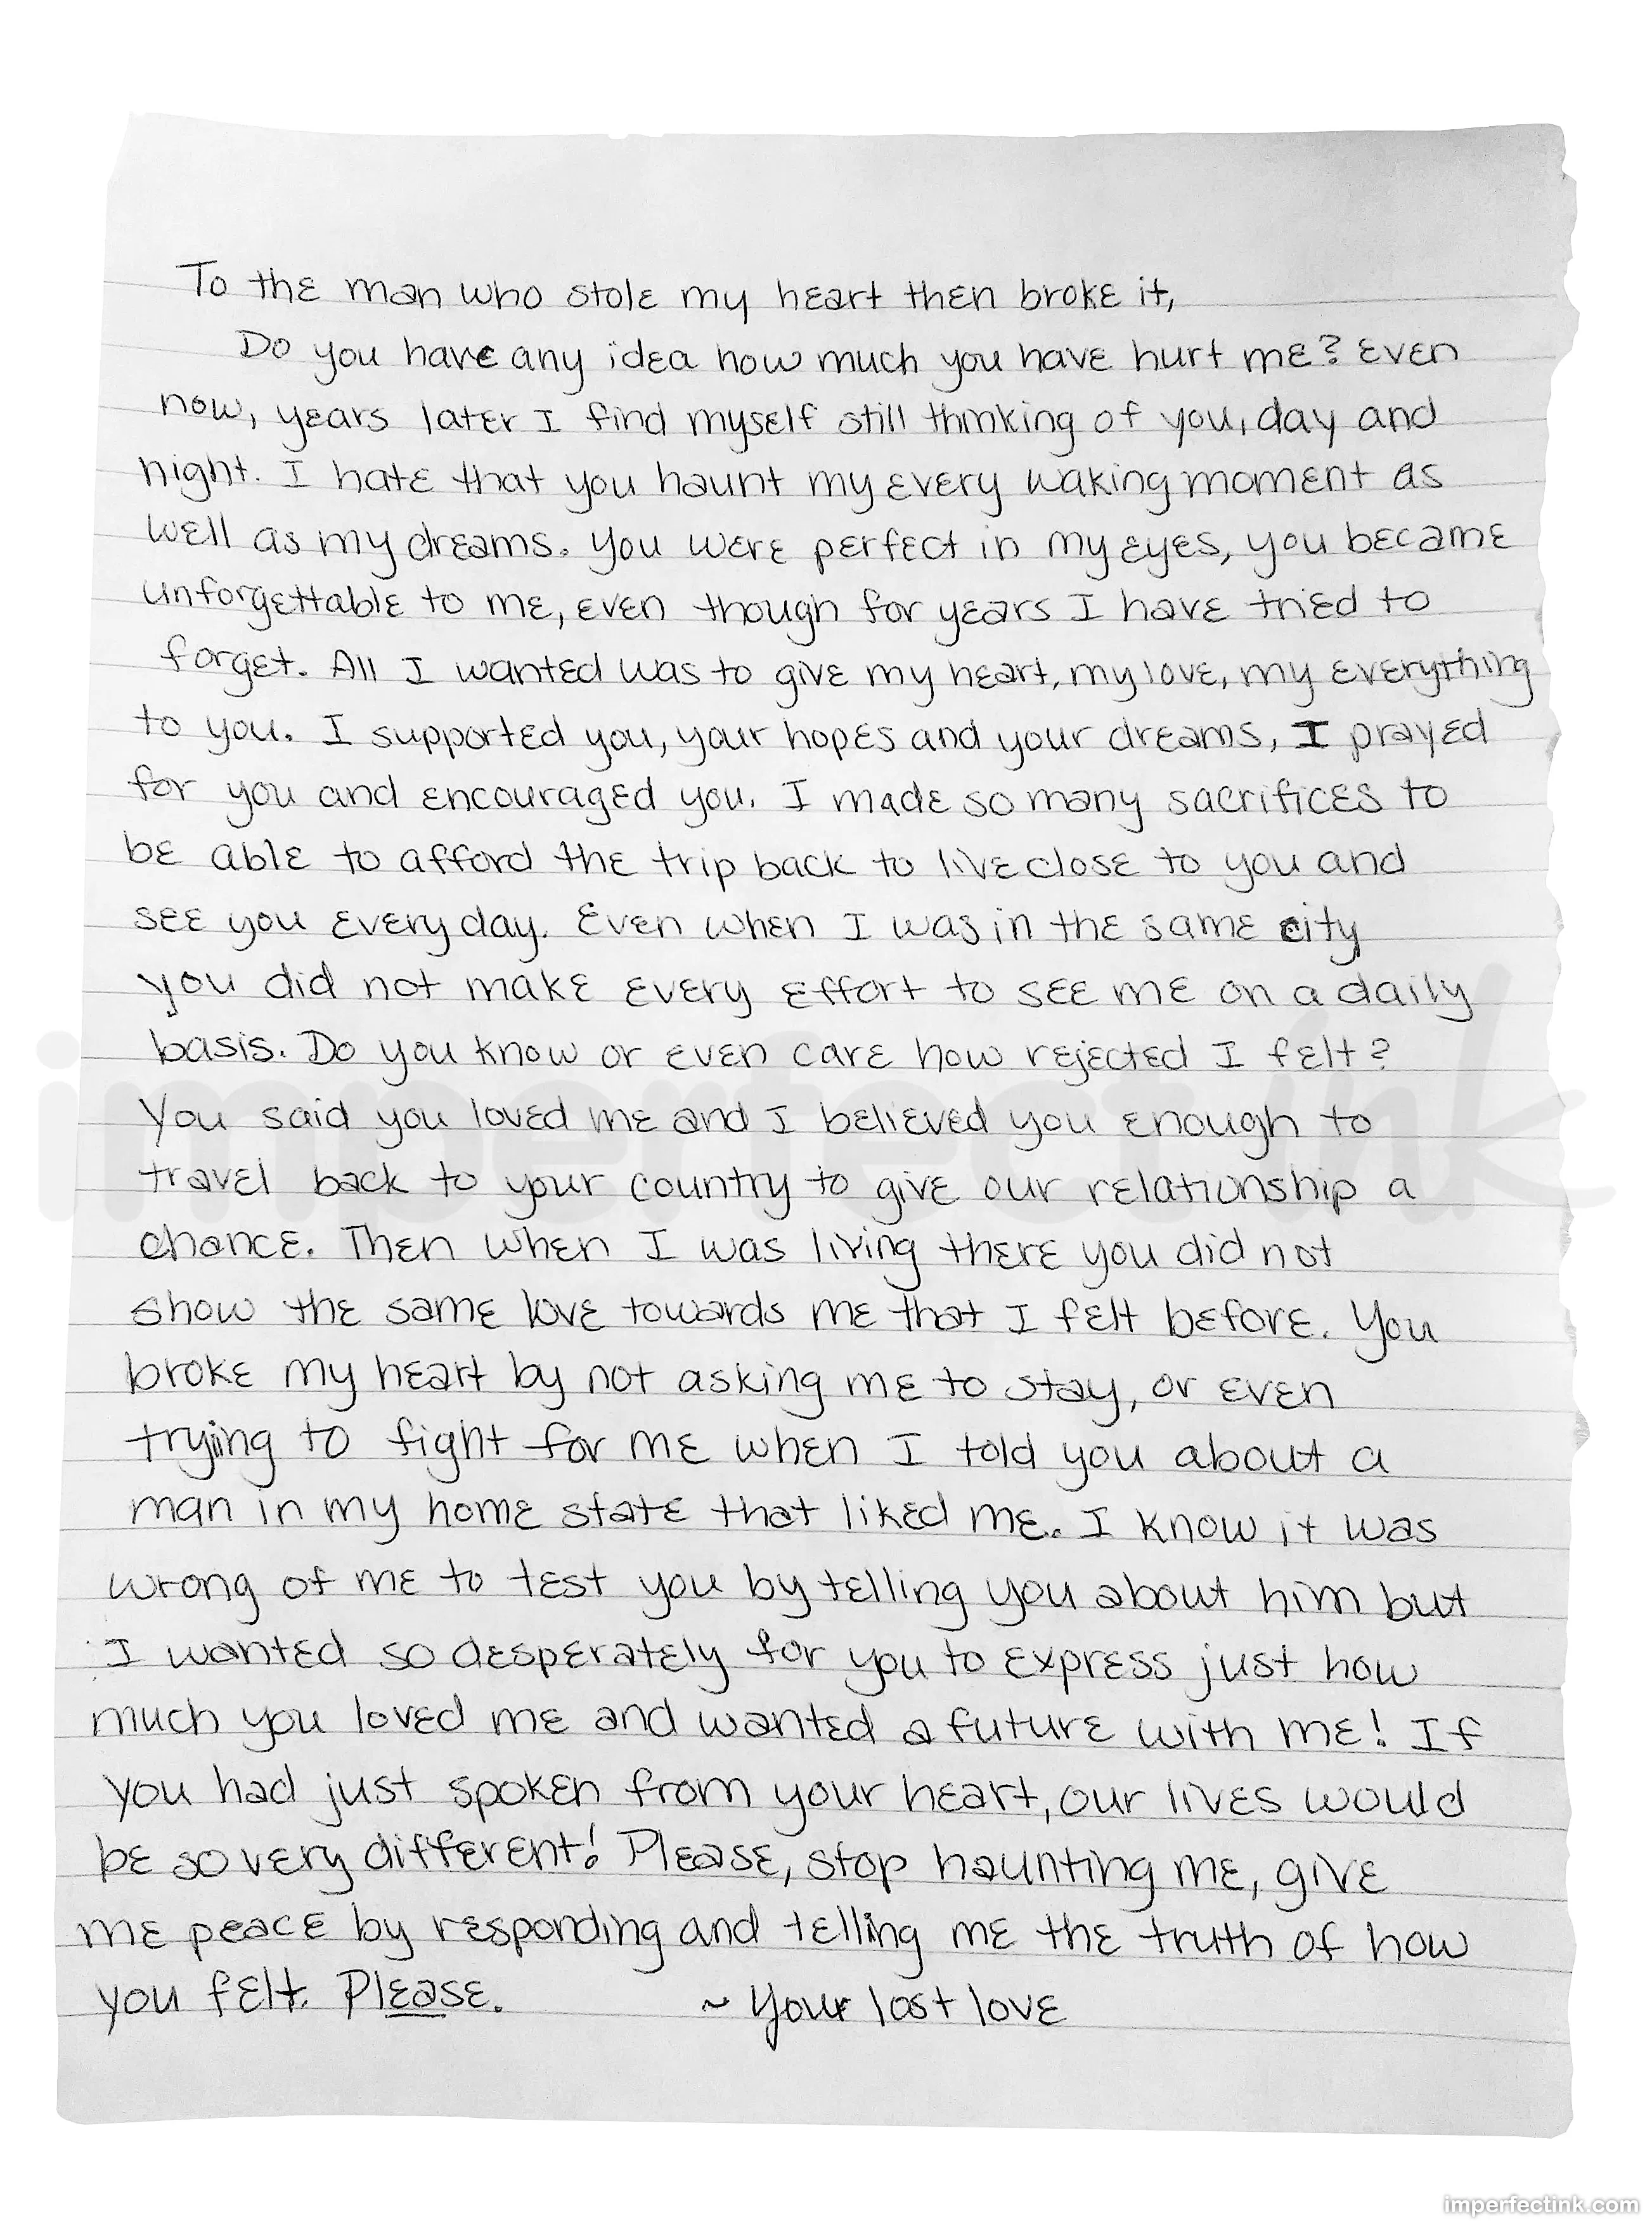 To the man who stole my heart then broke it,
Do you have any idea how much you have hurt me? Even
now, years later I find myself still thinking of you, day and
night. I hate that you haunt my every waking moment as
well as my dreams. You were perfect in my eyes, you became
unforgettable to me, even though for years I have tried to
forget. All I wanted was to give my heart, my love, my everything
to you. I supported you, your hopes and your dreams, I prayed
for you and encouraged you. I made so many sacrifices to
be able to afford the trip back to live close to you and
see you every day. Even when I was in the same city
you did not make every effort to see me on a daily
basis. Do you know or even care how rejected I felt?
You said you loved me and I believed you enough to
travel back to your country to give our relationship a
chance. Then when I was living there you did not
show the same love towards me that I felt before. You
broke my heart by not asking me to stay, or even
trying to fight for me when I told you about a
man in my home state that liked me. I know it was
wrong of me to test you by telling you about him but
I wanted so desperately for you to express just how
much you loved me and wanted a future with me! If
you had just spoken from your heart, our lives would
be so very different! Please, stop haunting me, give
me peace by responding and telling me the truth of how
you felt. Please.
~ Your lost love
imperfect ink
imperfectink.com